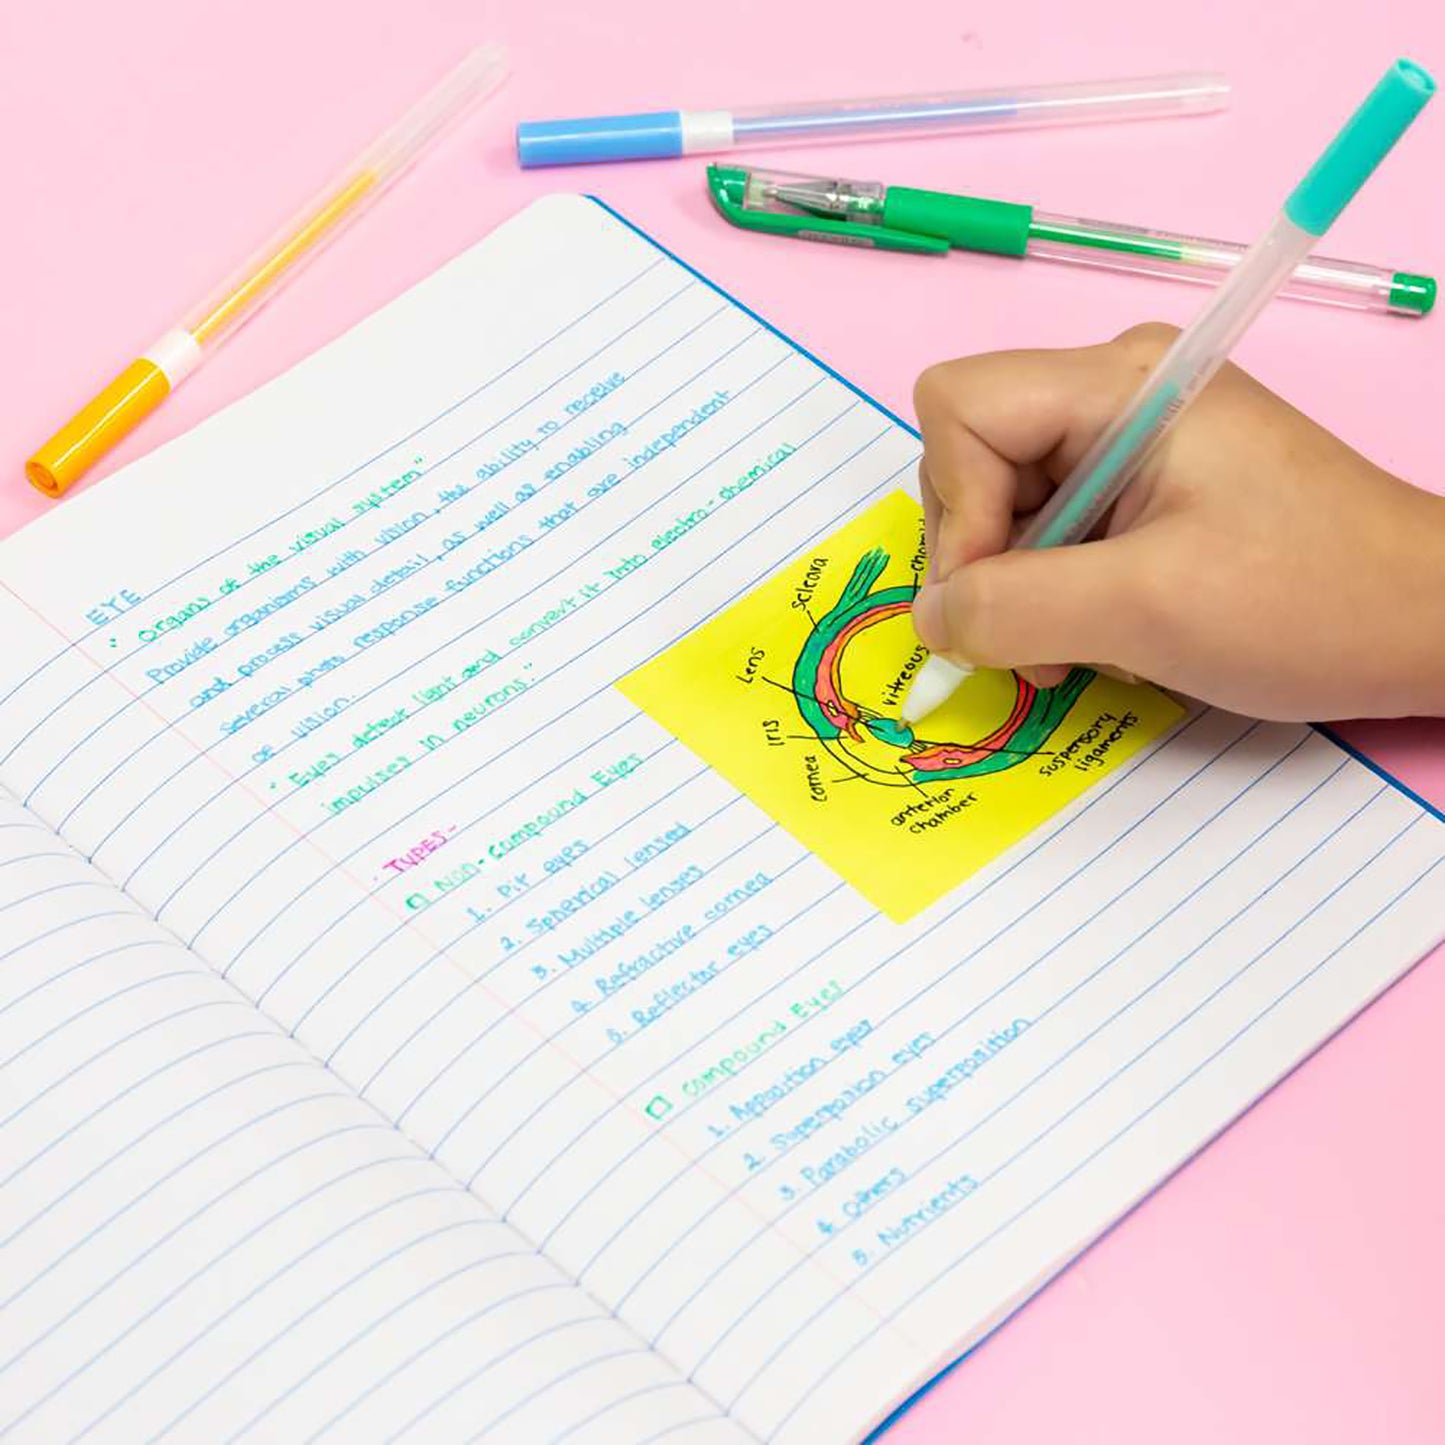 EYE
" Organs of the visual system"
Provide organisms with vision, the ability to receive
and process visual detail, as well as enabling
several photo response functions that are independent
of vision.
" Eyes detect light and convert it into electro-chemical
impulses in neurons."
TYPES-
Non-Compound Eyes
1. Pit eyes
2. Spherical lensed
3. Multiple lenses
4. Refractive cornea
5. Reflector eyes
Compound Eyes
1. Apposition eyes
2. Superposition eyes
3. Parabolic superposition
4. Others
5. Nutrients
Scleara
Lens
Iris
cornea
vitreous
anterior
chamber
suspensory
ligaments